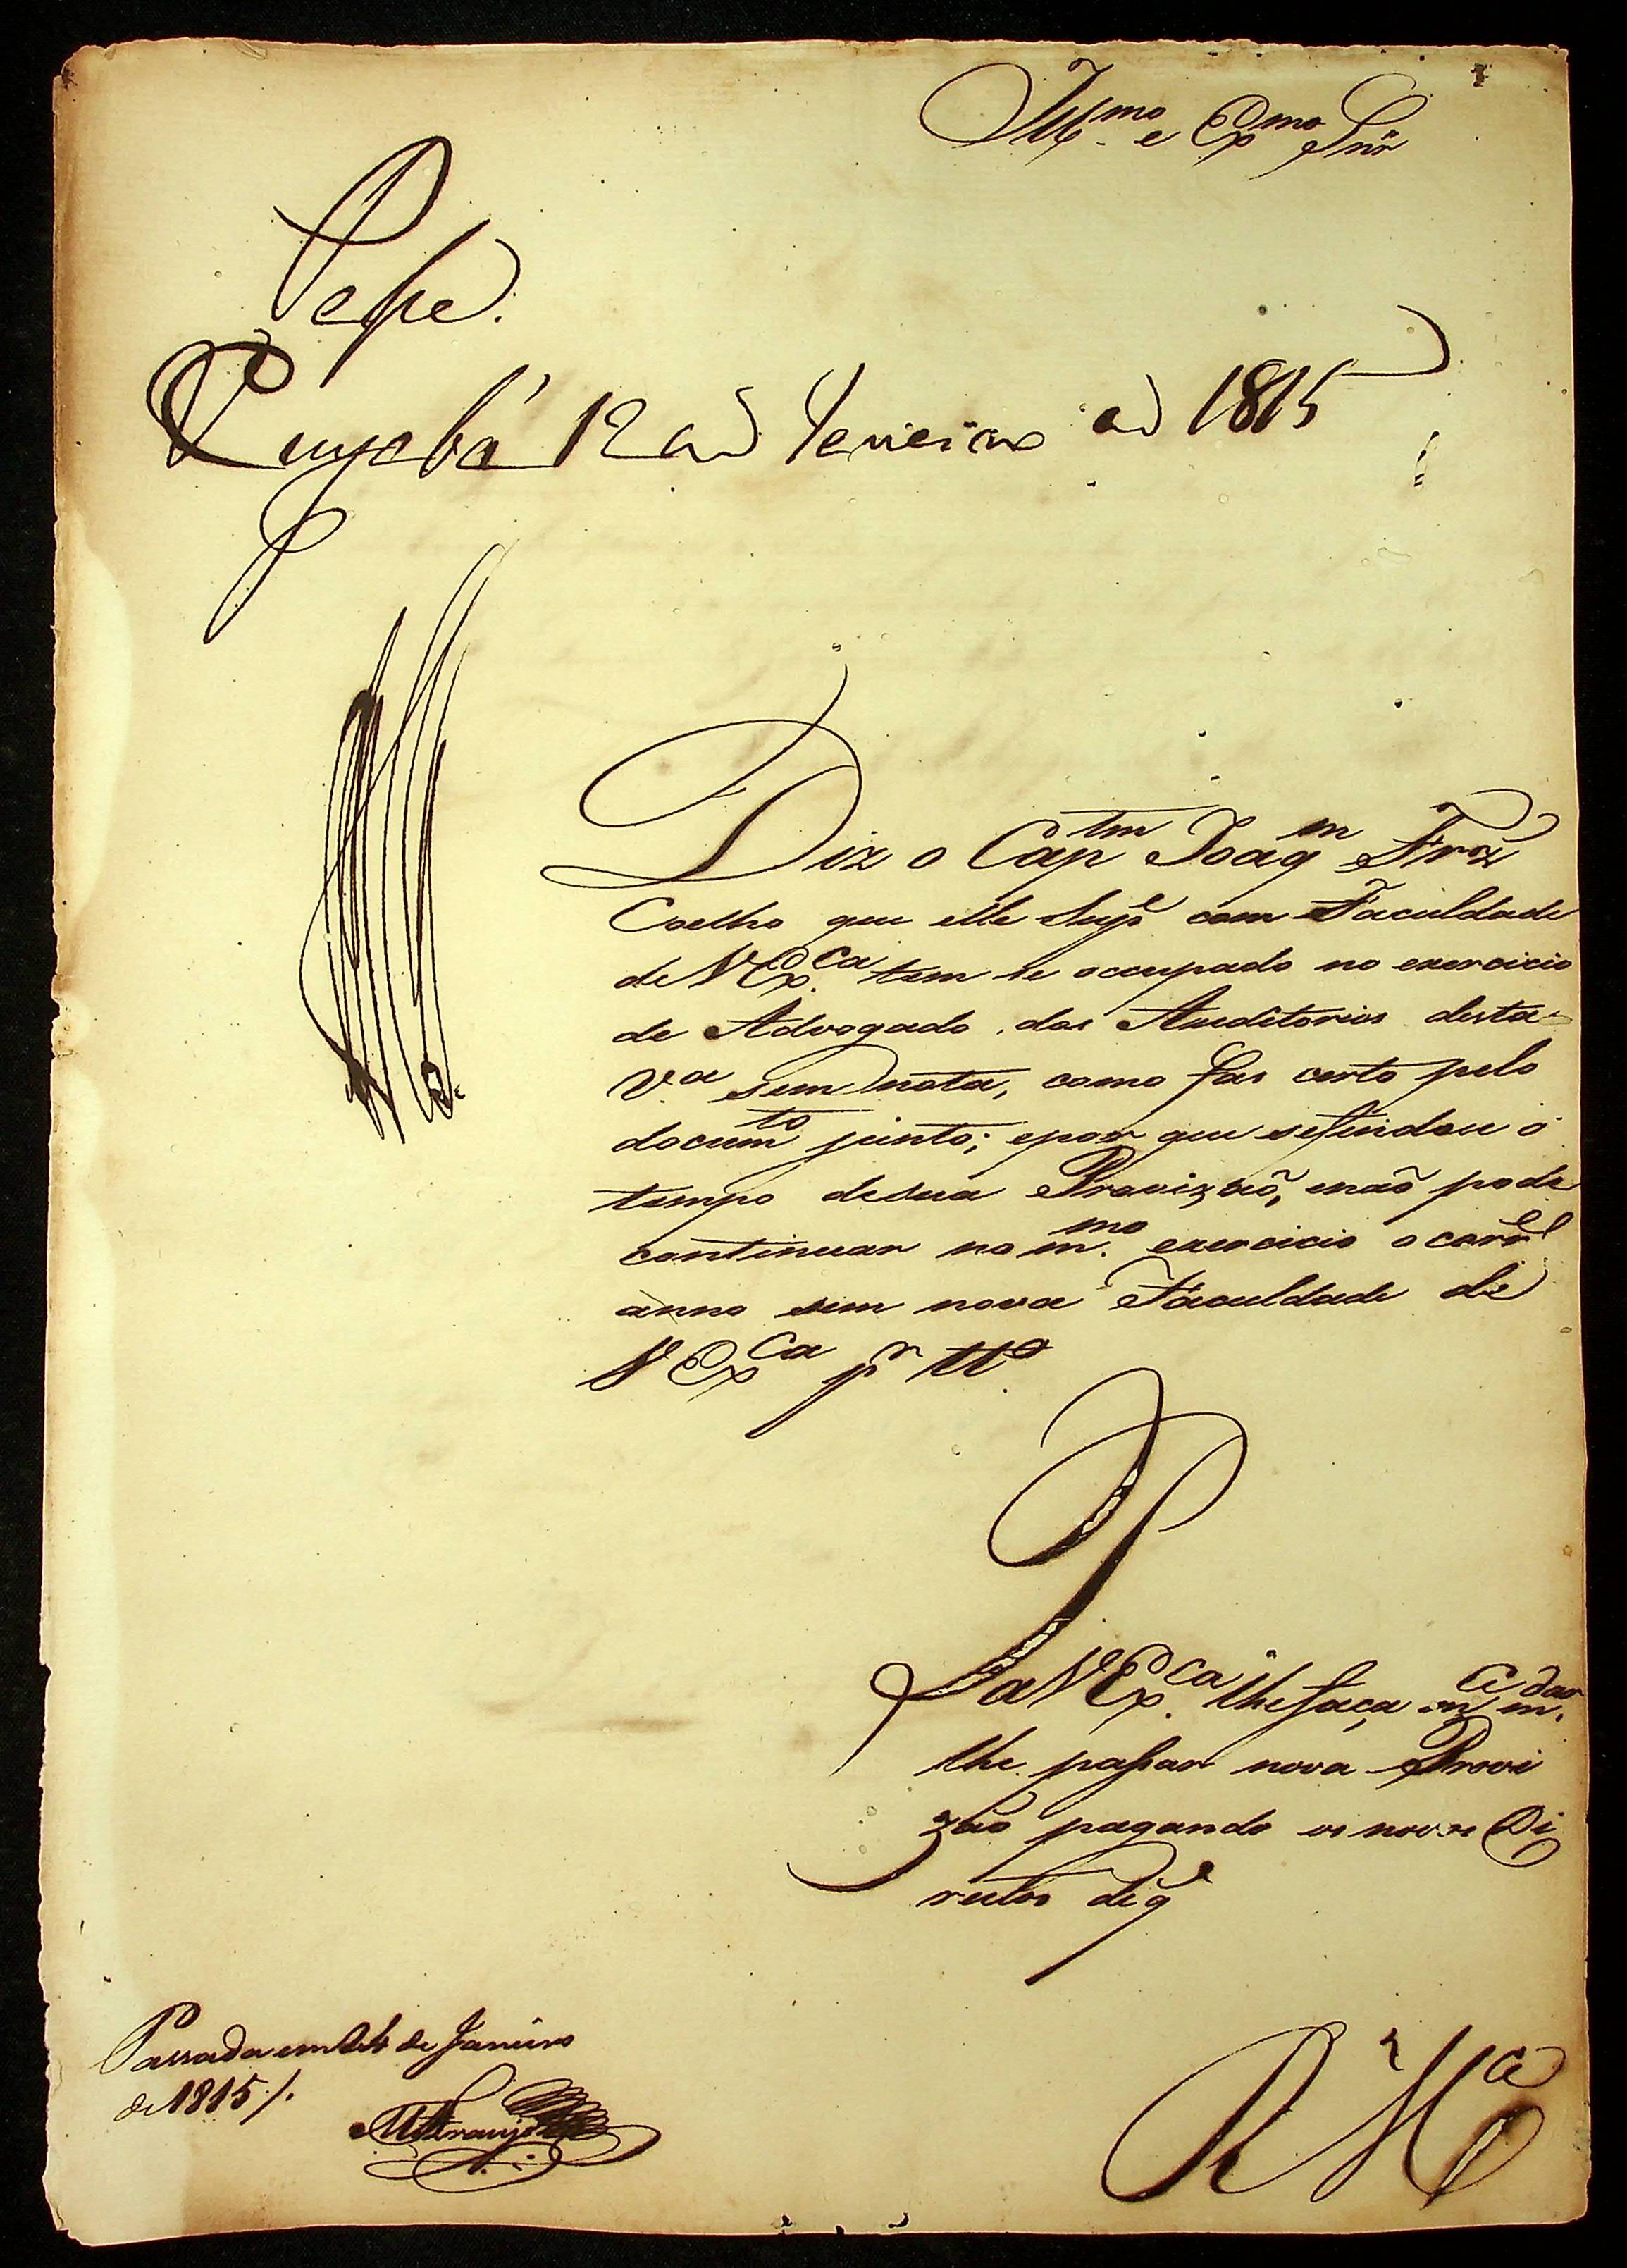 Ill.mo e Ex.mo Snr
Passe.
Cuyabá 12 de Janeiro de 1815
Diz o Cap.tm Joaq.m Frz
Coelho que elle Supe com Faculdade
de V Ex.ca tem se occupado no exercicio
de Advogado dos Auditorios desta
V.a sem nota, como fas certo pelo
docum.to junto; epor que sefindou o
tempo desua Provizaõ, enaõ pode
continuar no m.mo exercicio o corr.e
anno sem nova Faculdade de
V Ex.ca p.r tt.o
P a V Ex.ca lhefaça m.ce m.dar
lhe passar nova Provi
zaõ pagando os novos Di
reitos deq.
Passada em 24 de Janeiro
de 1815 /.
Araujo
R M.ce